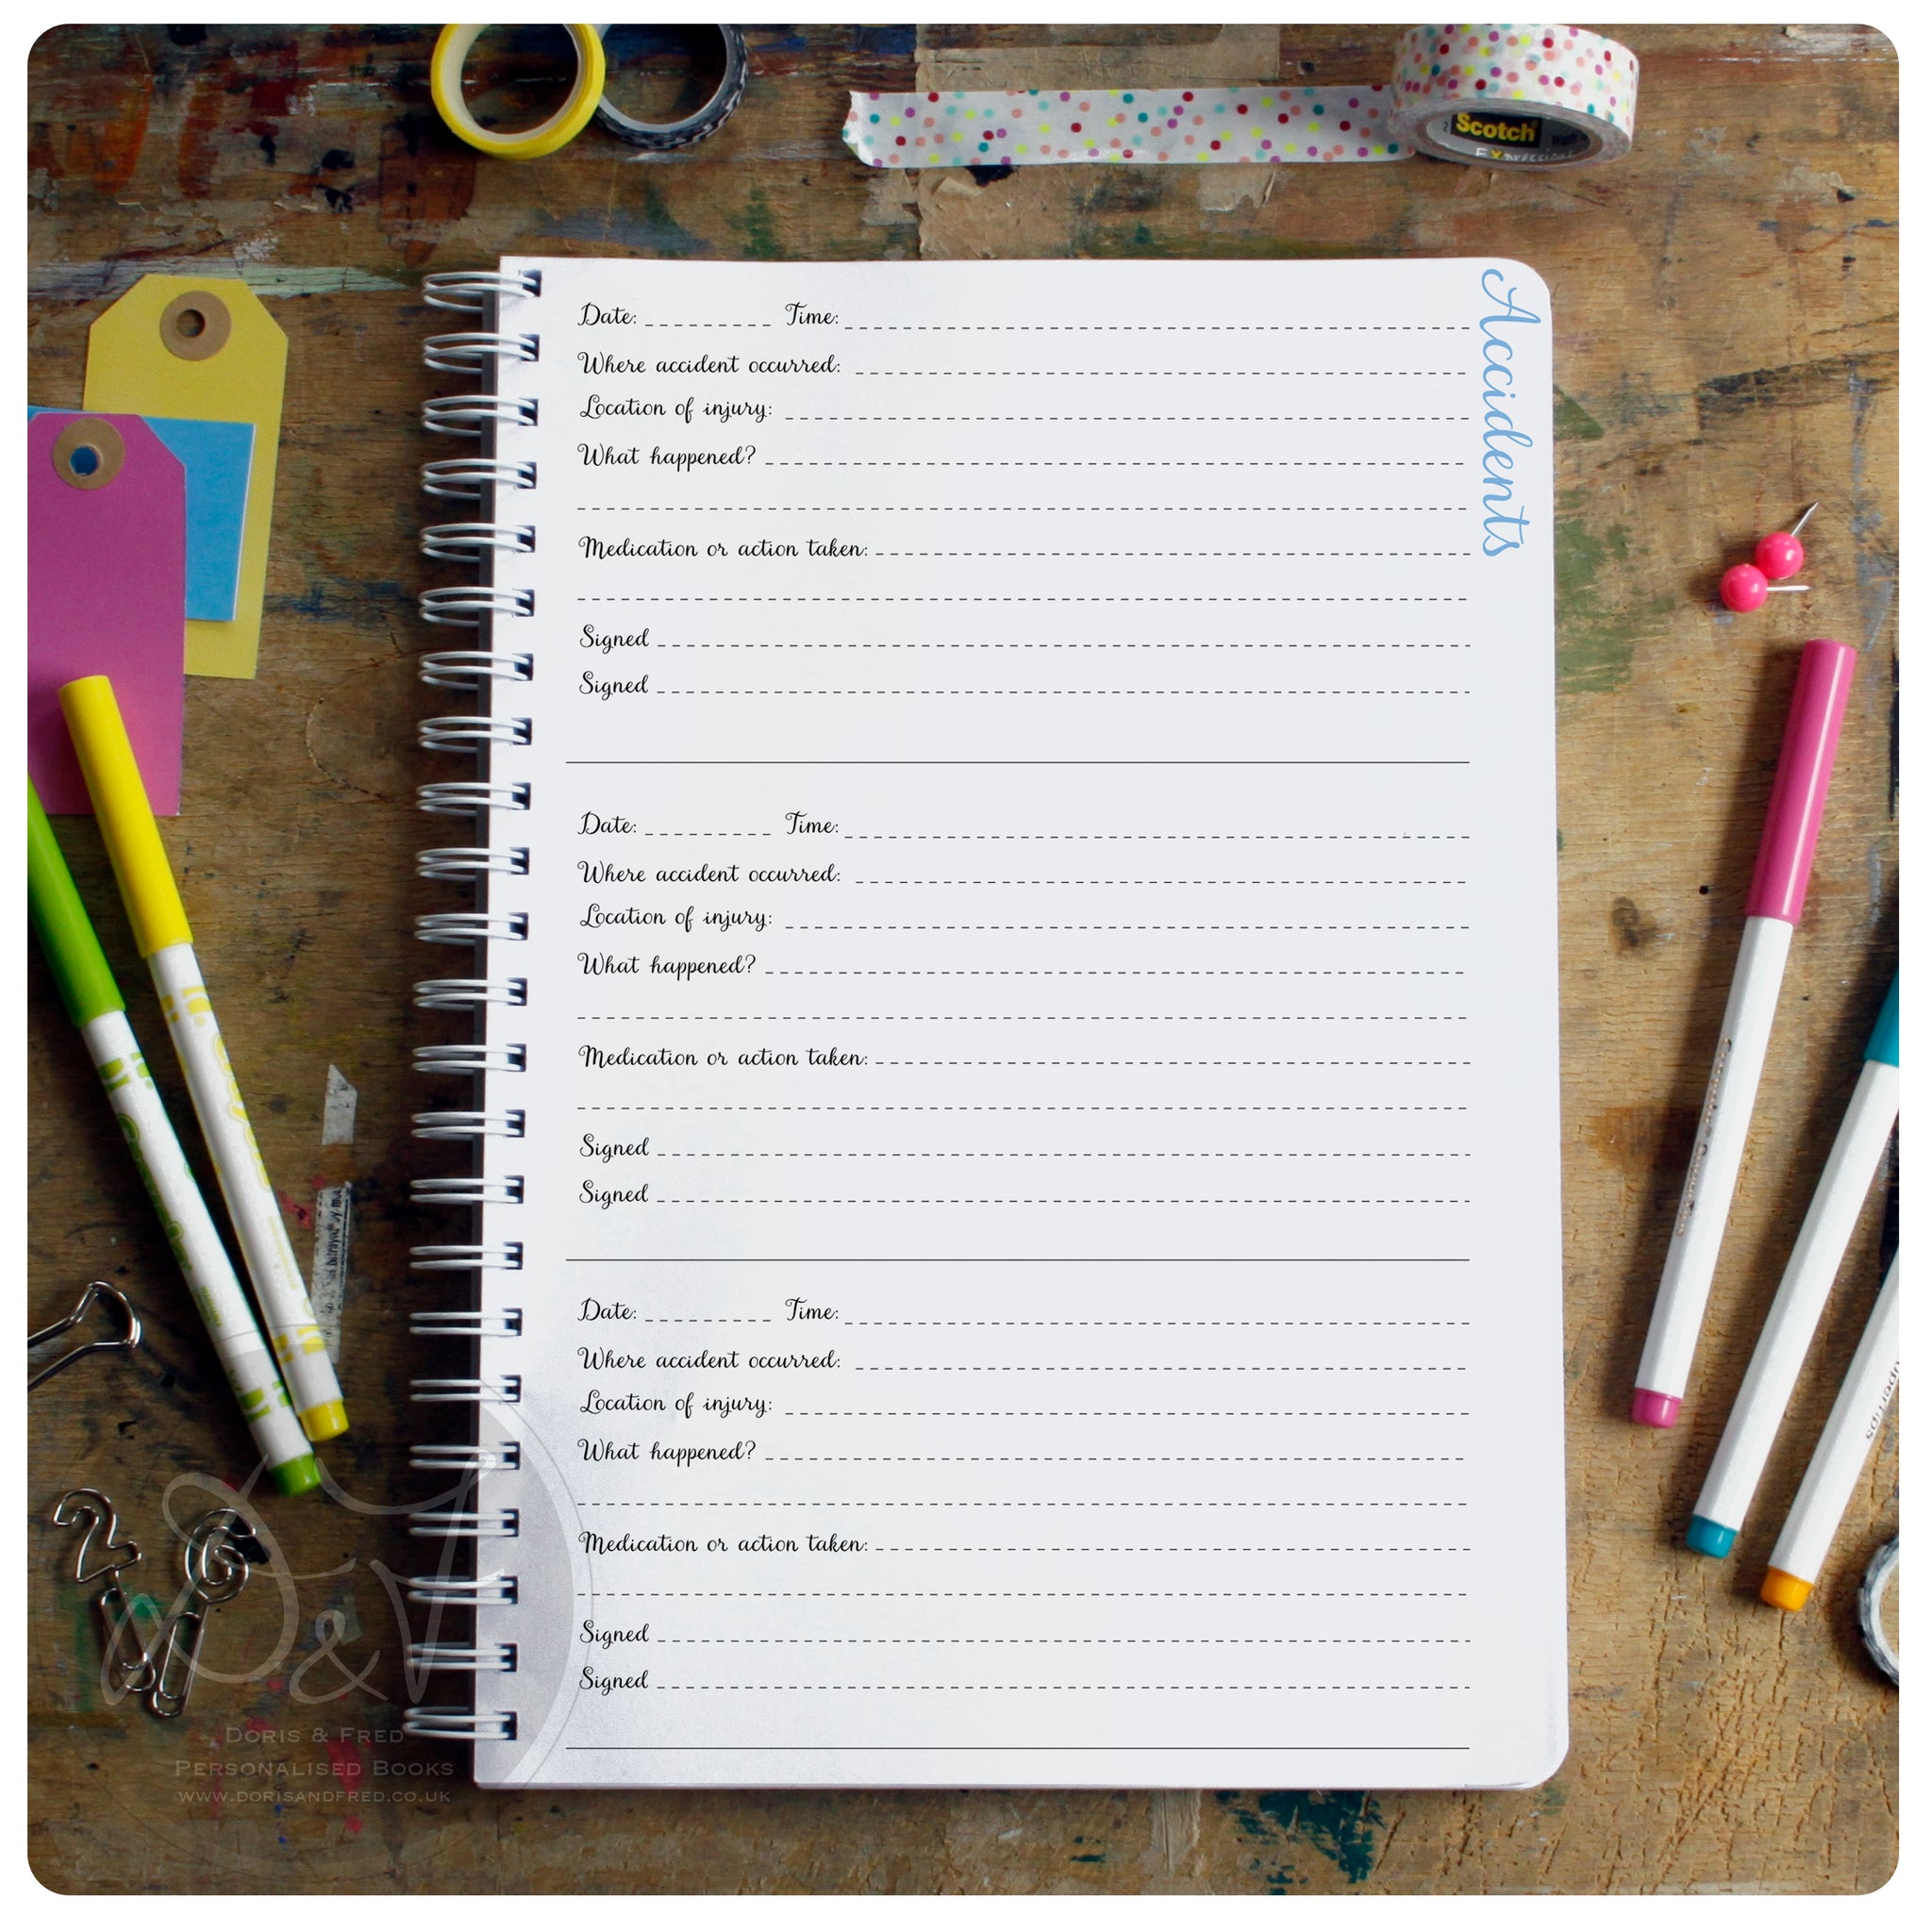 Scotch
Accidents
Date: Time:
Where accident occurred:
Location of injury:
What happened?
Medication or action taken:
Signed
Signed
Date: Time:
Where accident occurred:
Location of injury:
What happened?
Medication or action taken:
Signed
Signed
Date: Time:
Where accident occurred:
Location of injury:
What happened?
Medication or action taken:
Signed
Signed
D&F
Doris & Fred
Personalised Books
www.dorisandfred.co.uk